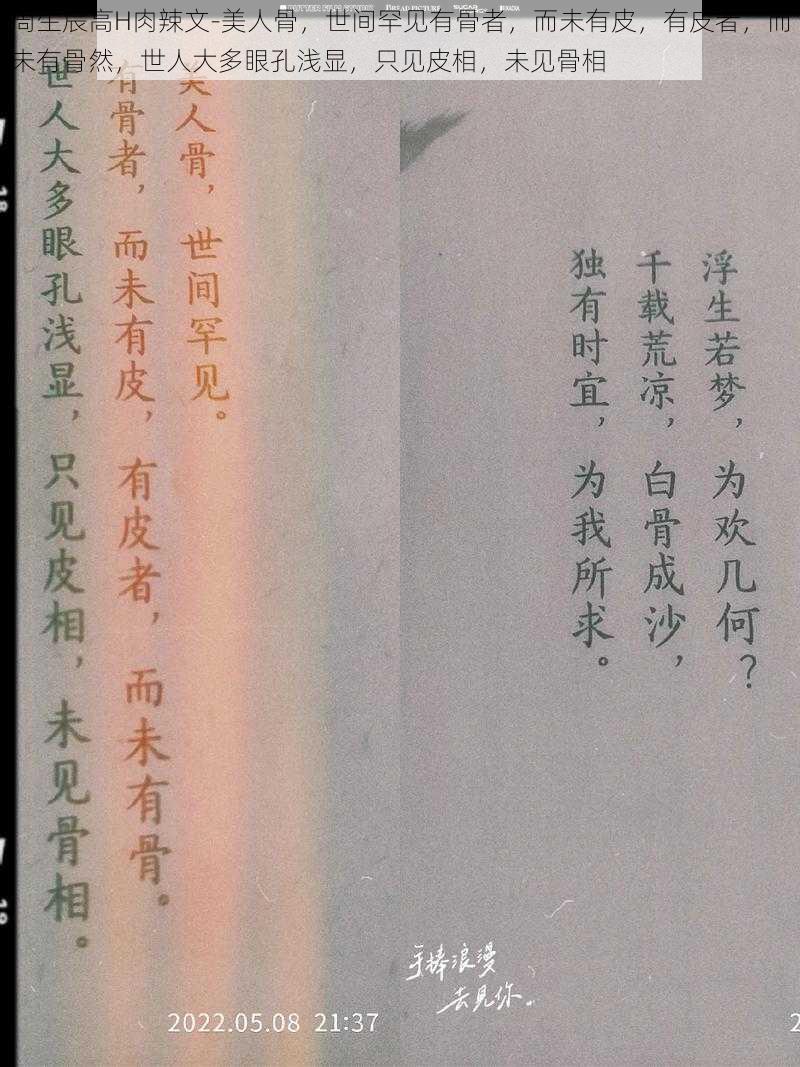 周生辰高H肉辣文-美人骨，世间罕见有骨者，而未有皮，有皮者，而
未有骨然，世人大多眼孔浅显，只见皮相，未见骨相
美人骨，世间罕见。
有骨者，而未有皮，有皮者，而未有骨。
世人大多眼孔浅显，只见皮相，未见骨相。
浮生若梦，为欢几何？
千载荒凉，白骨成沙，
独有时宜，为我所求。
手捧浪漫
去见你。
2022.05.08 21:37
2